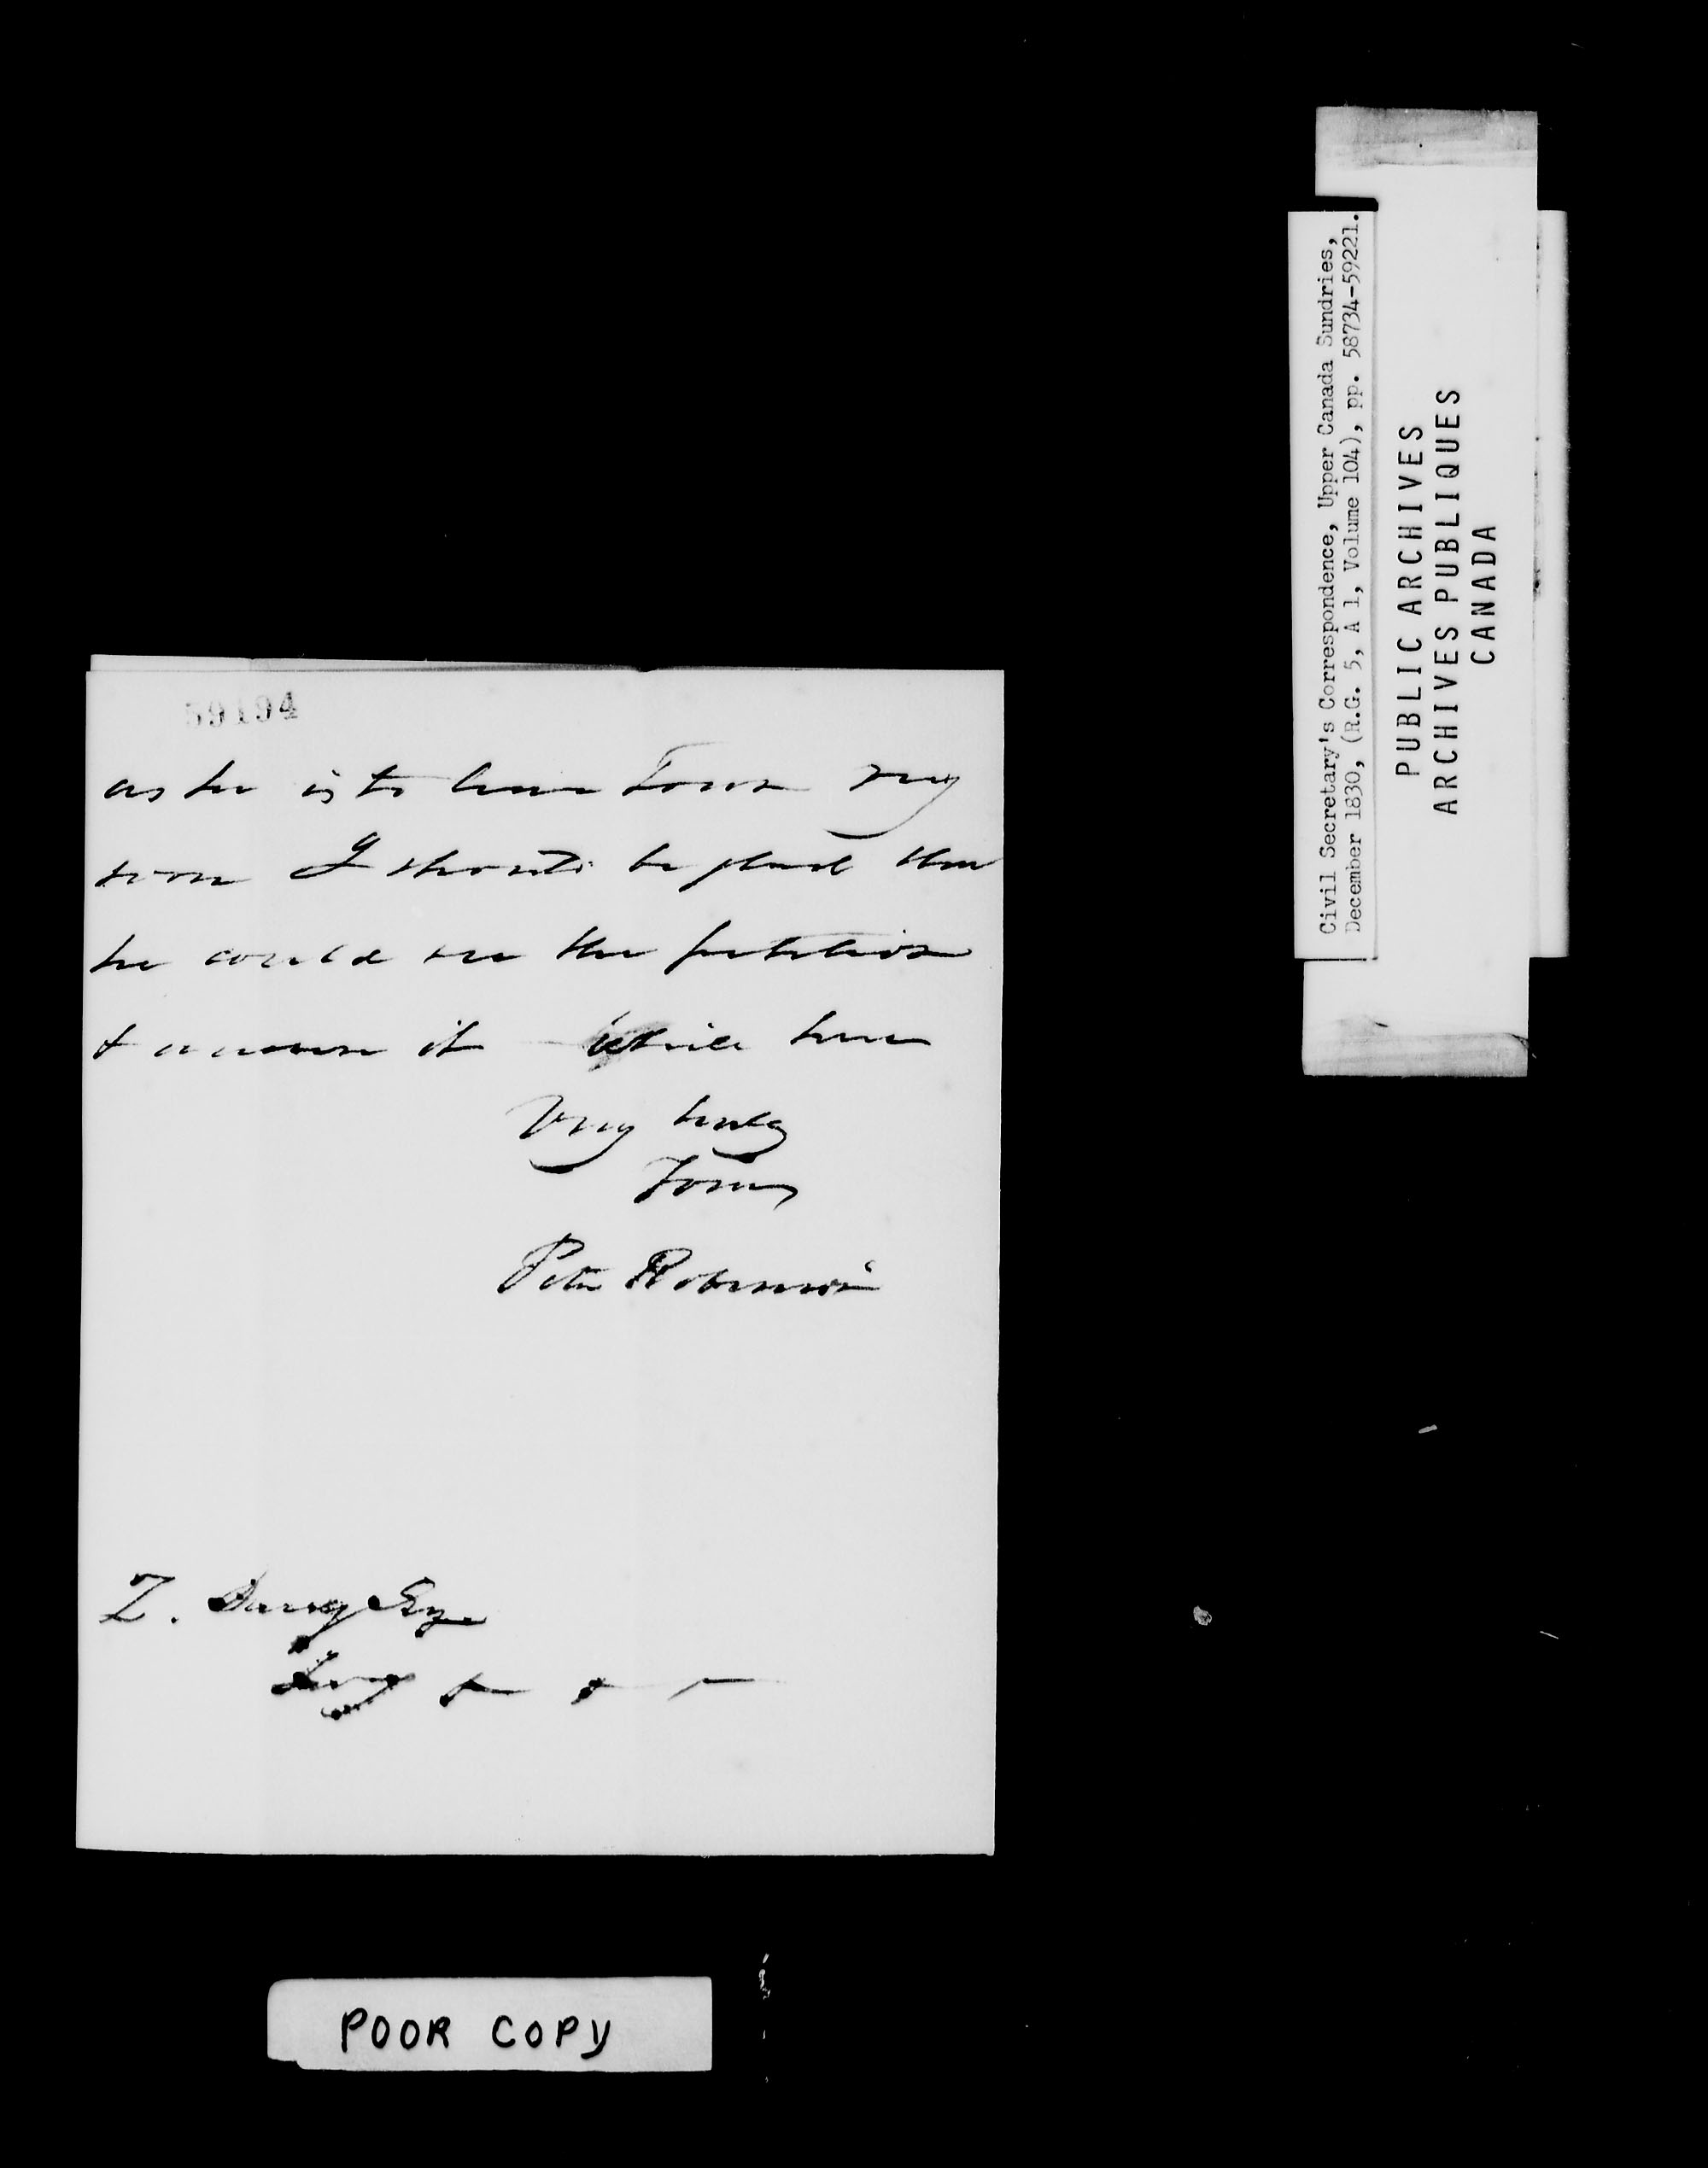 59194
as he is to leave Town very
soon I should be glad that
he could see the petition
& answer it while here
Very truly
Yours
Peter Robinson
Z. Mudge Esqr
&c & &
POOR COPY
Civil Secretary's Correspondence, Upper Canada Sundries,
December 1830, (R.G. 5, A 1, Volume 104), pp. 58734-59221.
PUBLIC ARCHIVES
ARCHIVES PUBLIQUES
CANADA